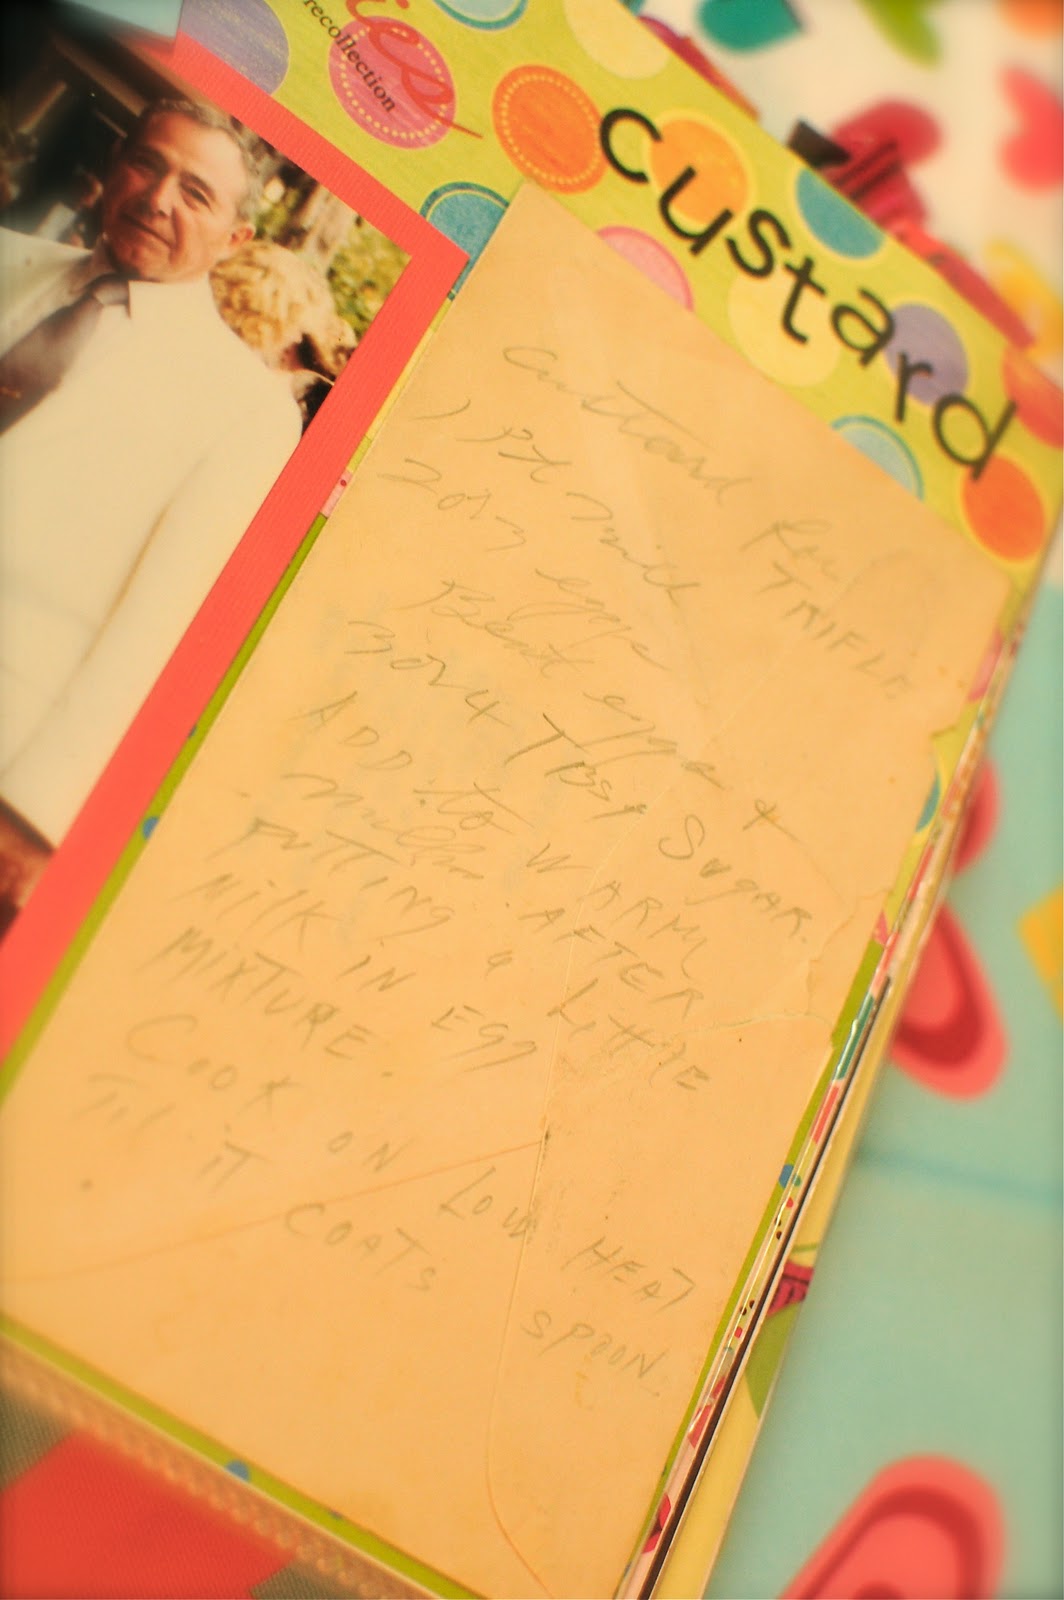 ies
recollection
custard
Custard Rec
TRIFLE
1 Pt milk
2 or 3 eggs
Beat eggs &
3 or 4 TBSP SUGAR.
ADD to WARM
milk AFTER
PUTTING a LittlE
MilK IN EGG
MIXTURE.
COOK ON LOW HEAT
Till IT COATS SPOON.